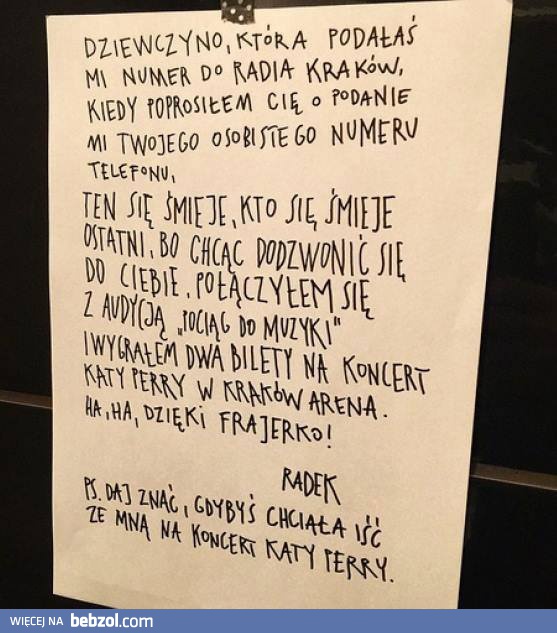 DZIEWCZYNO, KTÓRA PODAŁAŚ
MI NUMER DO RADIA KRAKÓW,
KIEDY POPROSIŁEM CIĘ O PODANIE
MI TWOJEGO OSOBISTEGO NUMERU
TELEFONU,
TEN SIĘ ŚMIEJE, KTO SIĘ ŚMIEJE
OSTATNI, BO CHCĄC DODZWONIĆ SIĘ
DO CIEBIE, POŁĄCZYŁEM SIĘ
Z AUDYCJĄ „POCIĄG DO MUZYKI"
I WYGRAŁEM DWA BILETY NA KONCERT
KATY PERRY W KRAKÓW ARENA.
HA, HA, DZIĘKI FRAJERKO!
RADEK
PS. DAJ ZNAĆ, GDYBYŚ CHCIAŁA IŚĆ
ZE MNĄ NA KONCERT KATY PERRY.
WIĘCEJ NA bebzol.com